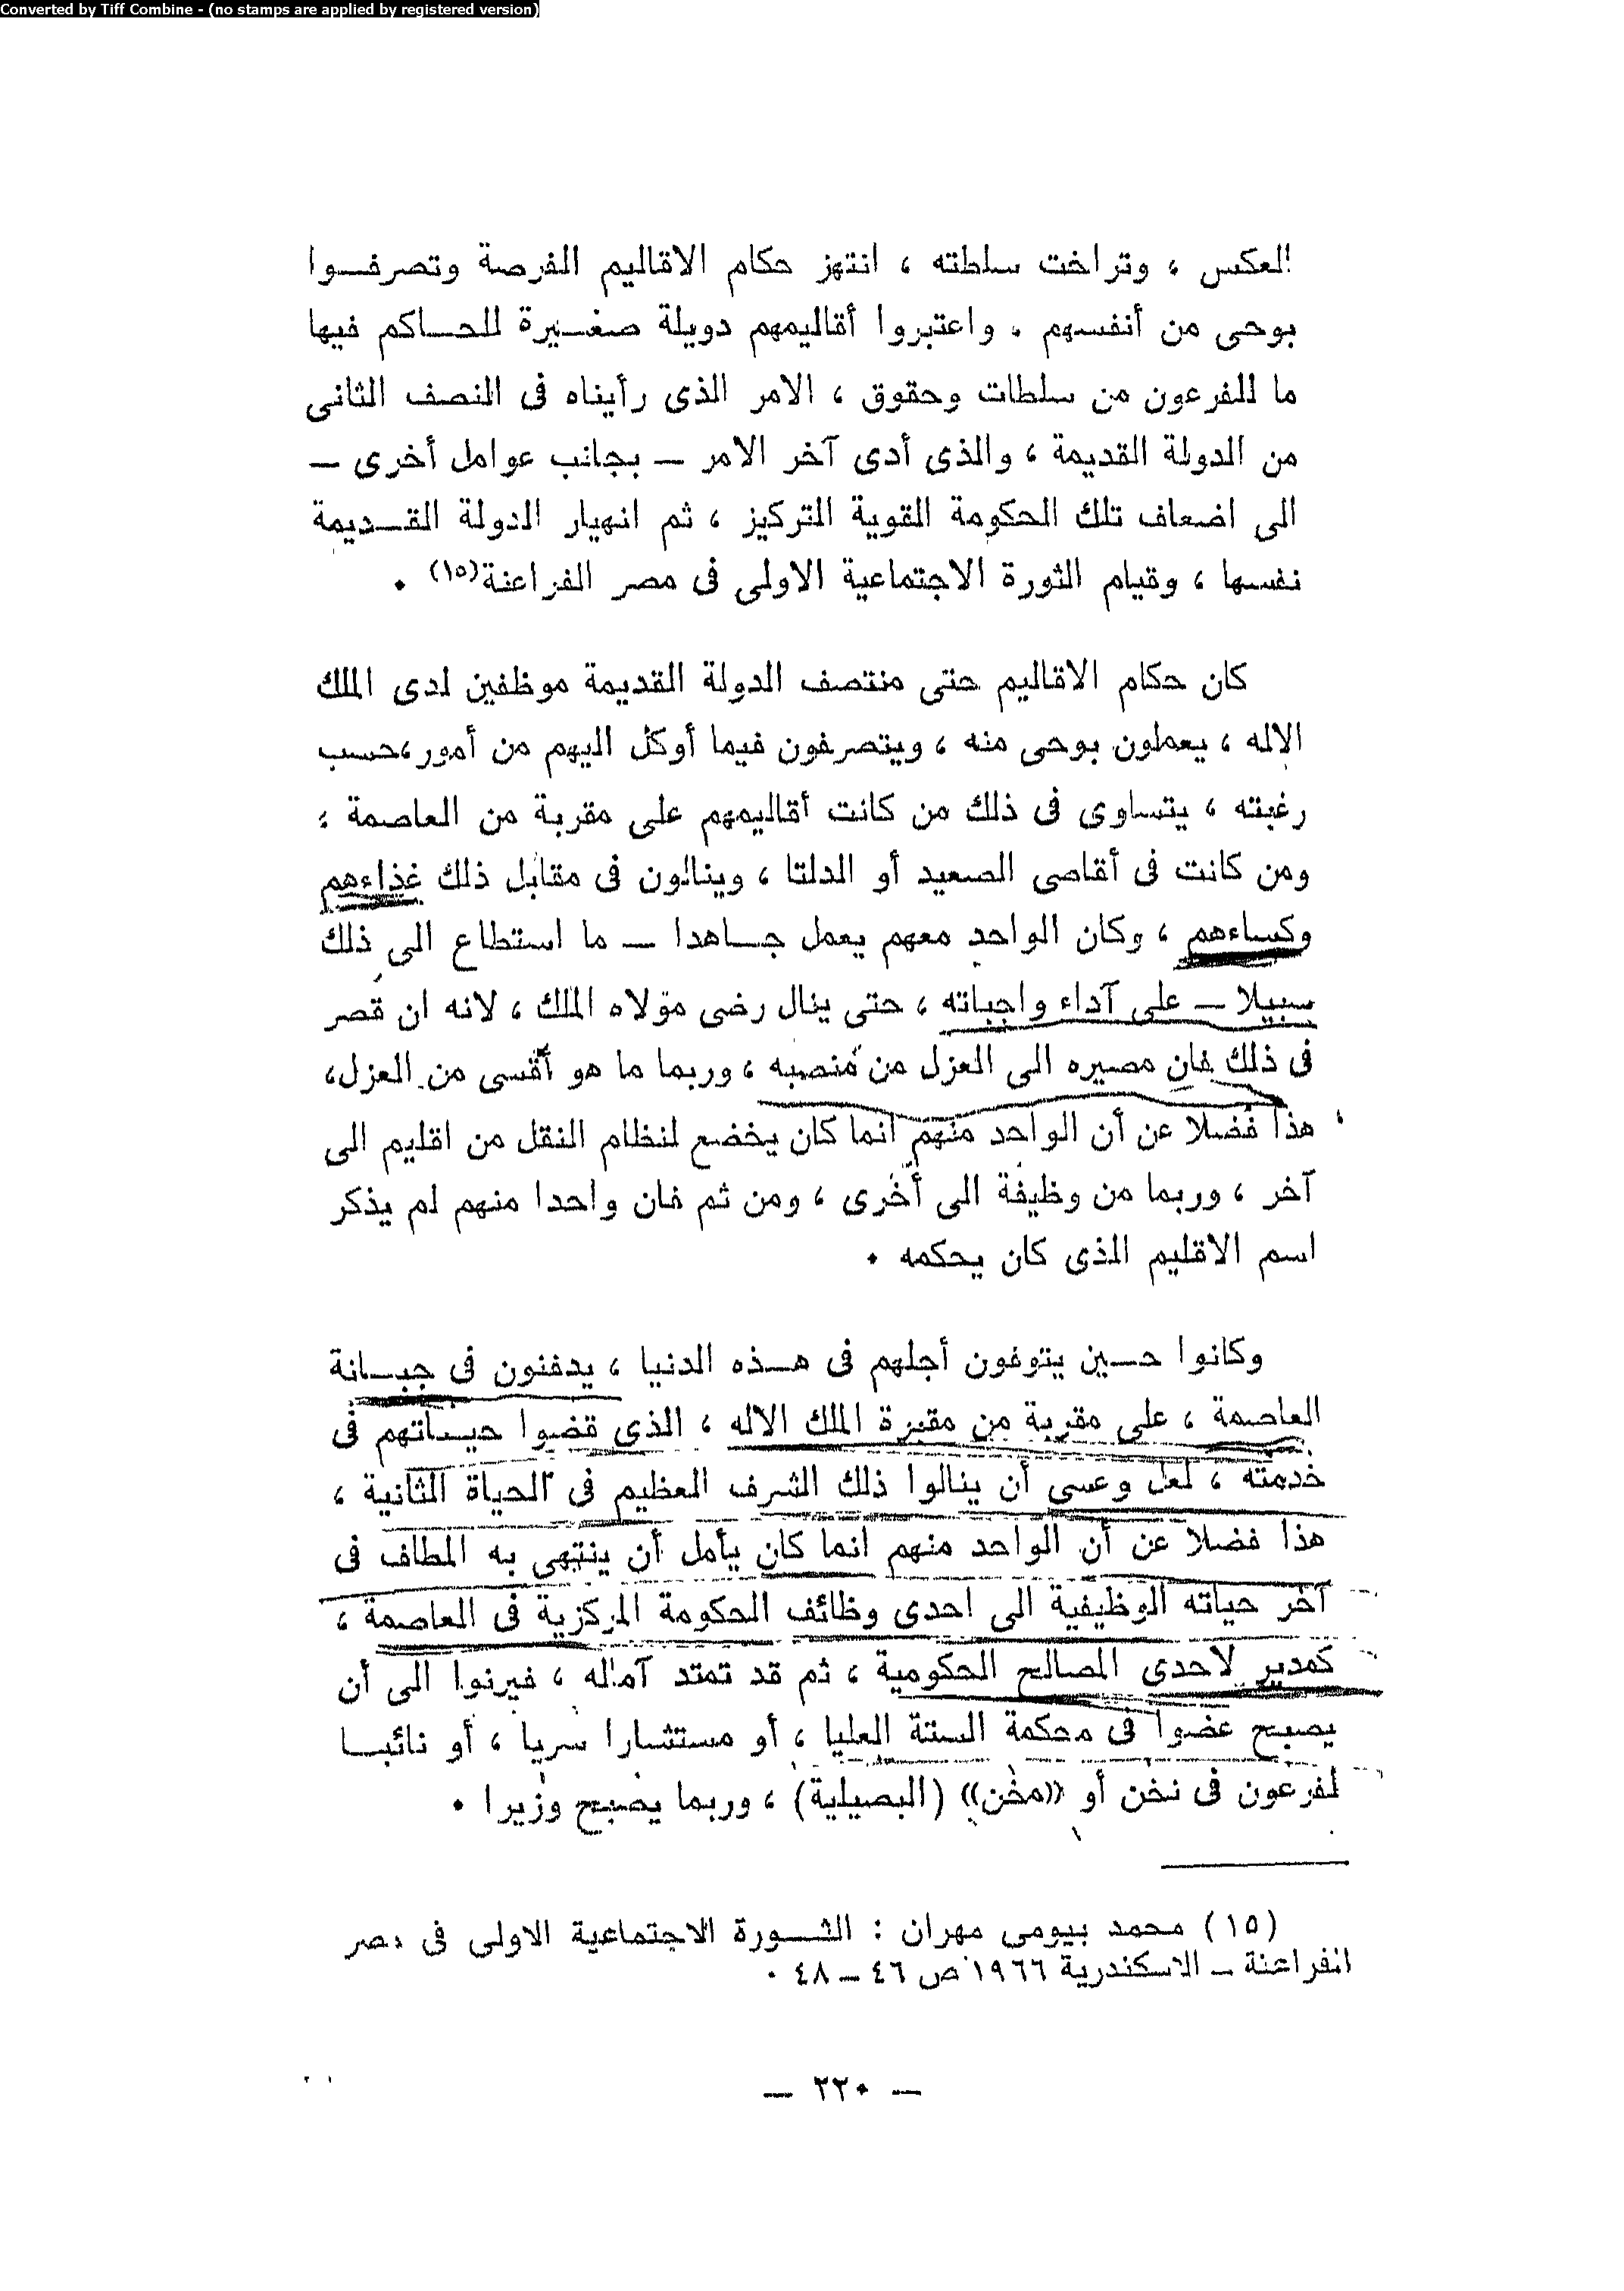 Converted by Tiff Combine - (no stamps are applied by registered version)
العكس ، وتراخت سلطته ، انتهز حكام الاقاليم الفرصة وتصرفوا
بوحى من أنفسهم . واعتبروا أقاليمهم دويلة صغيرة للحاكم فيها
ما للفرعون من سلطات وحقوق ، الامر الذى رأيناه فى النصف الثانى
من الدولة القديمة ، والذى أدى آخر الامر – بجانب عوامل أخرى –
الى اضعاف تلك الحكومة القوية التركيز ، ثم انهيار الدولة القديمة
نفسها ، وقيام الثورة الاجتماعية الاولى فى مصر الفراعنة(١٥) .
كان حكام الاقاليم حتى منتصف الدولة القديمة موظفين لدى الملك
الاله ، يعملون بوحى منه ، ويتصرفون فيما أوكل اليهم من أمور ، حسب
رغبته ، يتساوى فى ذلك من كانت أقاليمهم على مقربة من العاصمة ؛
ومن كانت فى أقاصى الصعيد أو الدلتا ، وينالون فى مقابل ذلك غذاءهم
وكساءهم ، وكان الواحد معهم يعمل جاهدا – ما استطاع الى ذلك
سبيلا – على آداء واجباته ، حتى ينال رضى مؤلاه الملك ، لانه ان قصر
فى ذلك فان مصيره الى العزل من منصبه ، وربما ما هو أقسى من العزل،
هذا فضلا عن أن الواحد منهم انما كان يخضع لنظام النقل من اقليم الى
آخر ، وربما من وظيفة الى أخرى ، ومن ثم فان واحدا منهم لم يذكر
اسم الاقليم الذى كان يحكمه .
وكانوا حين يتوفون أجلهم فى هذه الدنيا ، يدفنون فى جبانة
العاصمة ، على مقربة من مقبرة الملك الاله ، الذى قضوا حياتهم فى
خدمته ، لعل وعسى أن ينالوا ذلك الشرف العظيم فى الحياة الثانية ،
هذا فضلا عن أن الواحد منهم انما كان يأمل أن ينتهى به المطاف فى
آخر حياته الوظيفية الى احدى وظائف الحكومة المركزية فى العاصمة ،
كمدير لاحدى المصالح الحكومية ، ثم قد تمتد آماله ، فيرنوا الى أن
يصبح عضوا فى محكمة الستة العليا ، أو مستشارا سريا ، أو نائبا
لفرعون فى نخن أو «مخن» (البصيلية) ، وربما يصبح وزيرا .
(١٥) محمد بيومى مهران : الثورة الاجتماعية الاولى فى مصر
الفراعنة – الاسكندرية ١٩٦٦ ص ٤٦ – ٤٨ .
– ٢٢٠ –